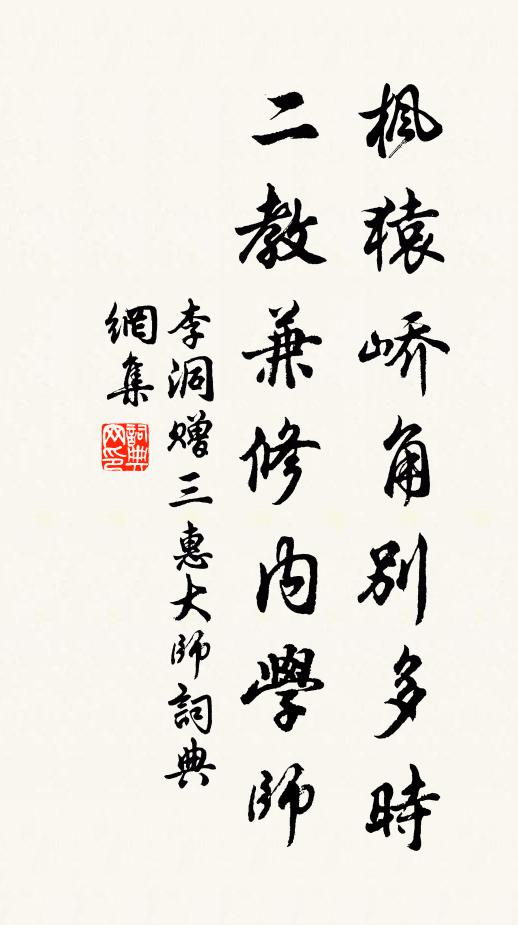 枫猿峤角别多時
二教兼修内學師
李洞贈三惠大師詞典
網集
詞典
网印